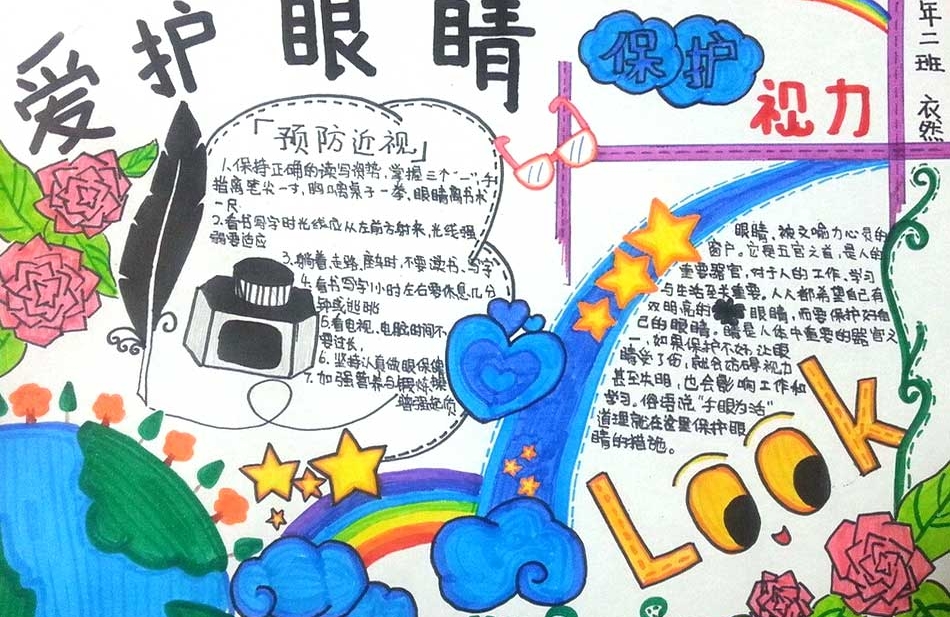 爱护眼睛
保护
视力
年二班 衣然
「预防近视」
1.保持正确的读写姿势,掌握三个"一",手
指离笔尖一寸,胸离桌子一拳,眼睛离书本
一尺
2.看书写字时光线应从左前方射来,光线强
弱要适应
3.躺着、走路、乘车时,不要读书、写字
4.看书写字1小时左右要休息几分
钟或远眺
5.看电视、电脑时间不
要过长,
6.坚持认真做眼保健
7.加强营养与锻炼操
增强体质
眼睛,被义喻力心灵的
窗户。它是五官之首,是人的
重要器官,对于人的工作、学习
与生活至关重要。人人都希望自己有
双明亮的 眼睛,而要保护好自
己的眼睛。睛是人体中重要的器官之
一,如果保护不好,让眼
睛受了伤,就会妨碍视力
甚至失明,也会影响工作和
学习。俗语说"手眼为活"
道理就在这里保护眼
睛的措施。
Look